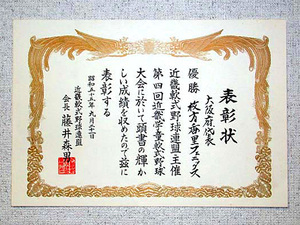 表彰状
大阪府代表
優勝 枚方香里フェニックス
近畿軟式野球連盟主催
第四回近畿学童軟式野球
大会に於いて頭書の輝か
しい成績を収めたので茲に
表彰する
昭和五十五年九月二十一日
近畿軟式野球連盟
会長 藤井森男